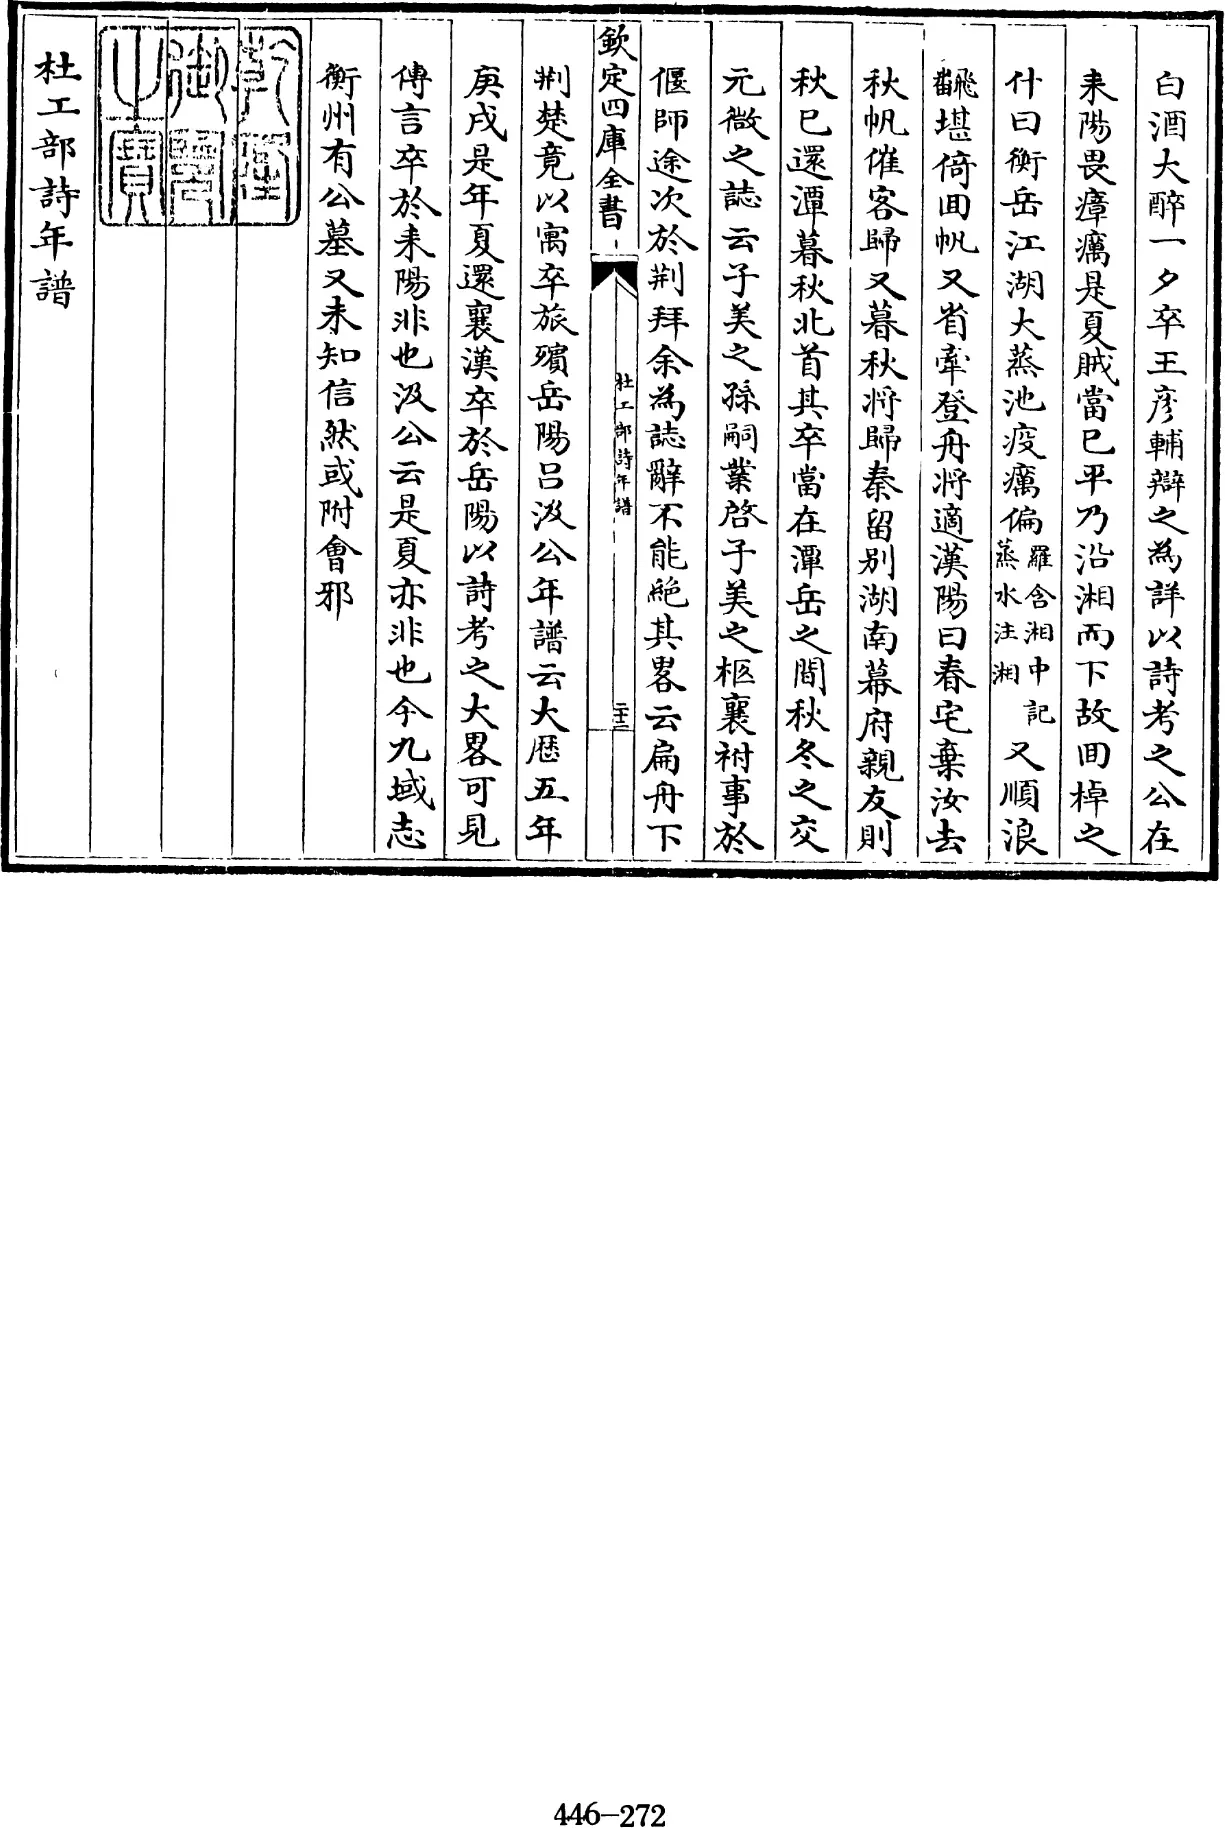 白酒大醉一夕卒王彦輔辯之為詳以詩考之公在
耒陽畏瘴癘是夏賊當已平乃沿湘而下故回棹之
什曰衡岳江湖大蒸池疫癘偏羅含湘中記蒸水注湘又順浪
飜堪倚回帆又省牽登舟將適漢陽曰春宅棄汝去
秋帆催客歸又暮秋將歸秦留别湖南幕府親友則
秋已還潭暮秋北首其卒當在潭岳之間秋冬之交
元微之誌云子美之孫嗣業啓子美之柩襄祔事於
偃師途次於荆拜余為誌辭不能絶其畧云扁舟下
欽定四庫全書
杜工部詩年譜
二十三
荆楚竟以寓卒旅殯岳陽吕汲公年譜云大厯五年
庚戌是年夏還襄漢卒於岳陽以詩考之大畧可見
傳言卒於耒陽非也汲公云是夏亦非也今九域志
衡州有公墓又未知信然或附會邪
乾隆御覽之寳
杜工部詩年譜
446-272